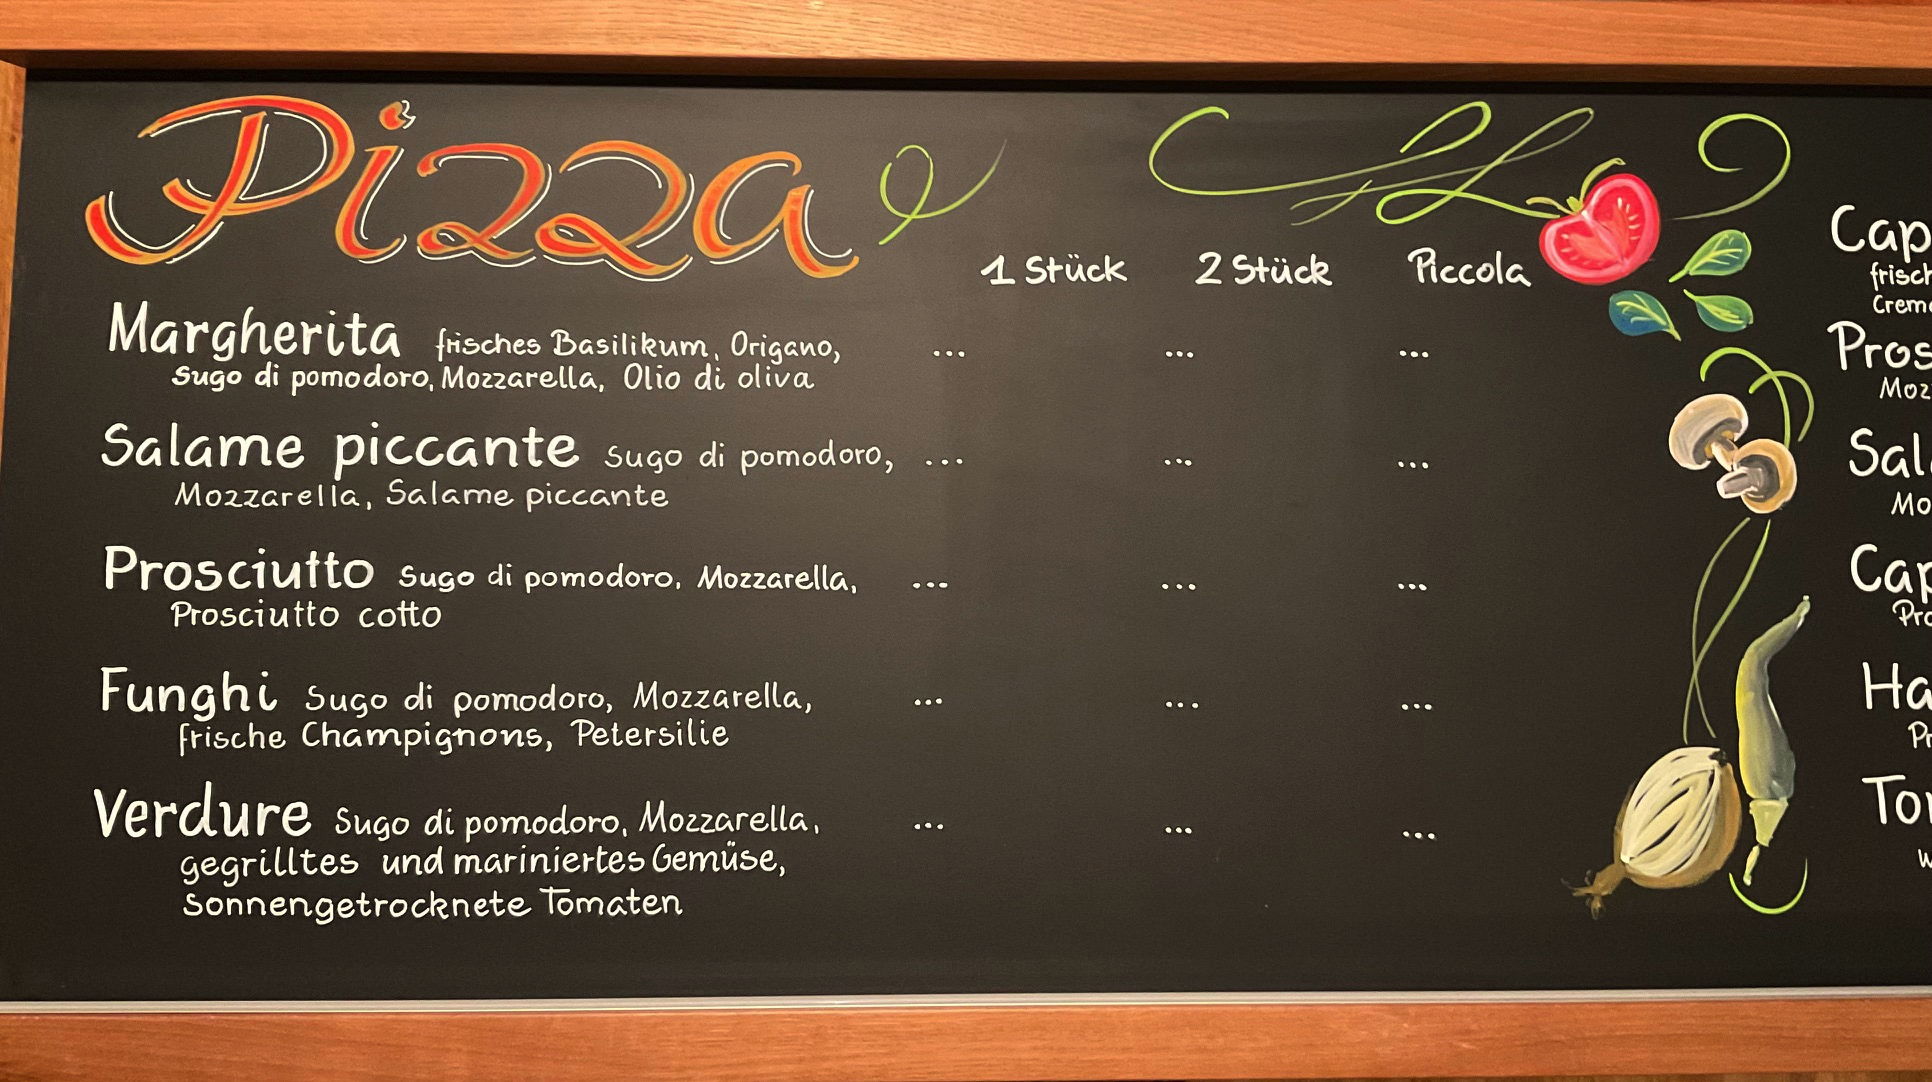 Pizza
1 Stück 2 Stück Piccola
Margherita frisches Basilikum, Origano, ... ... ...
Sugo di pomodoro, Mozzarella, Olio di oliva
Salame piccante Sugo di pomodoro, ... ... ...
Mozzarella, Salame piccante
Prosciutto Sugo di pomodoro, Mozzarella, ... ... ...
Prosciutto cotto
Funghi Sugo di pomodoro, Mozzarella, ... ... ...
frische Champignons, Petersilie
Verdure Sugo di pomodoro, Mozzarella, ... ... ...
gegrilltes und mariniertes Gemüse,
Sonnengetrocknete Tomaten